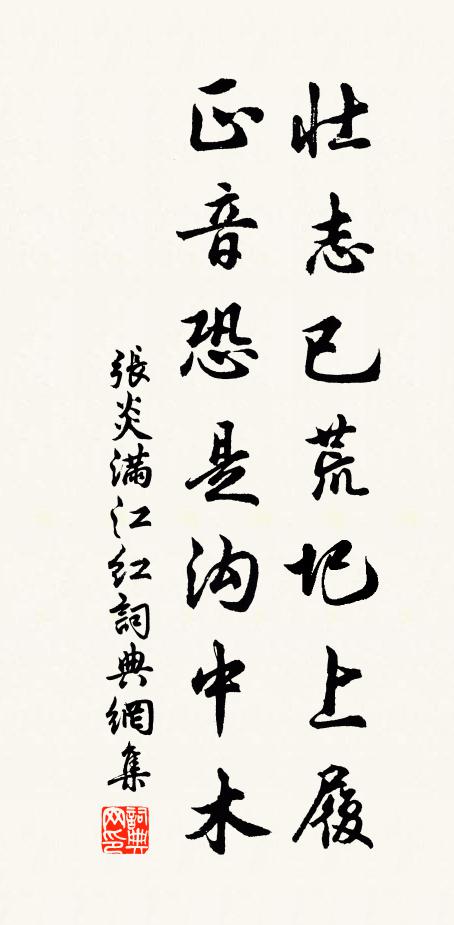 壮志已荒圯上履
正音恐是沟中木
張炎满江红詞典網集
詞典网印